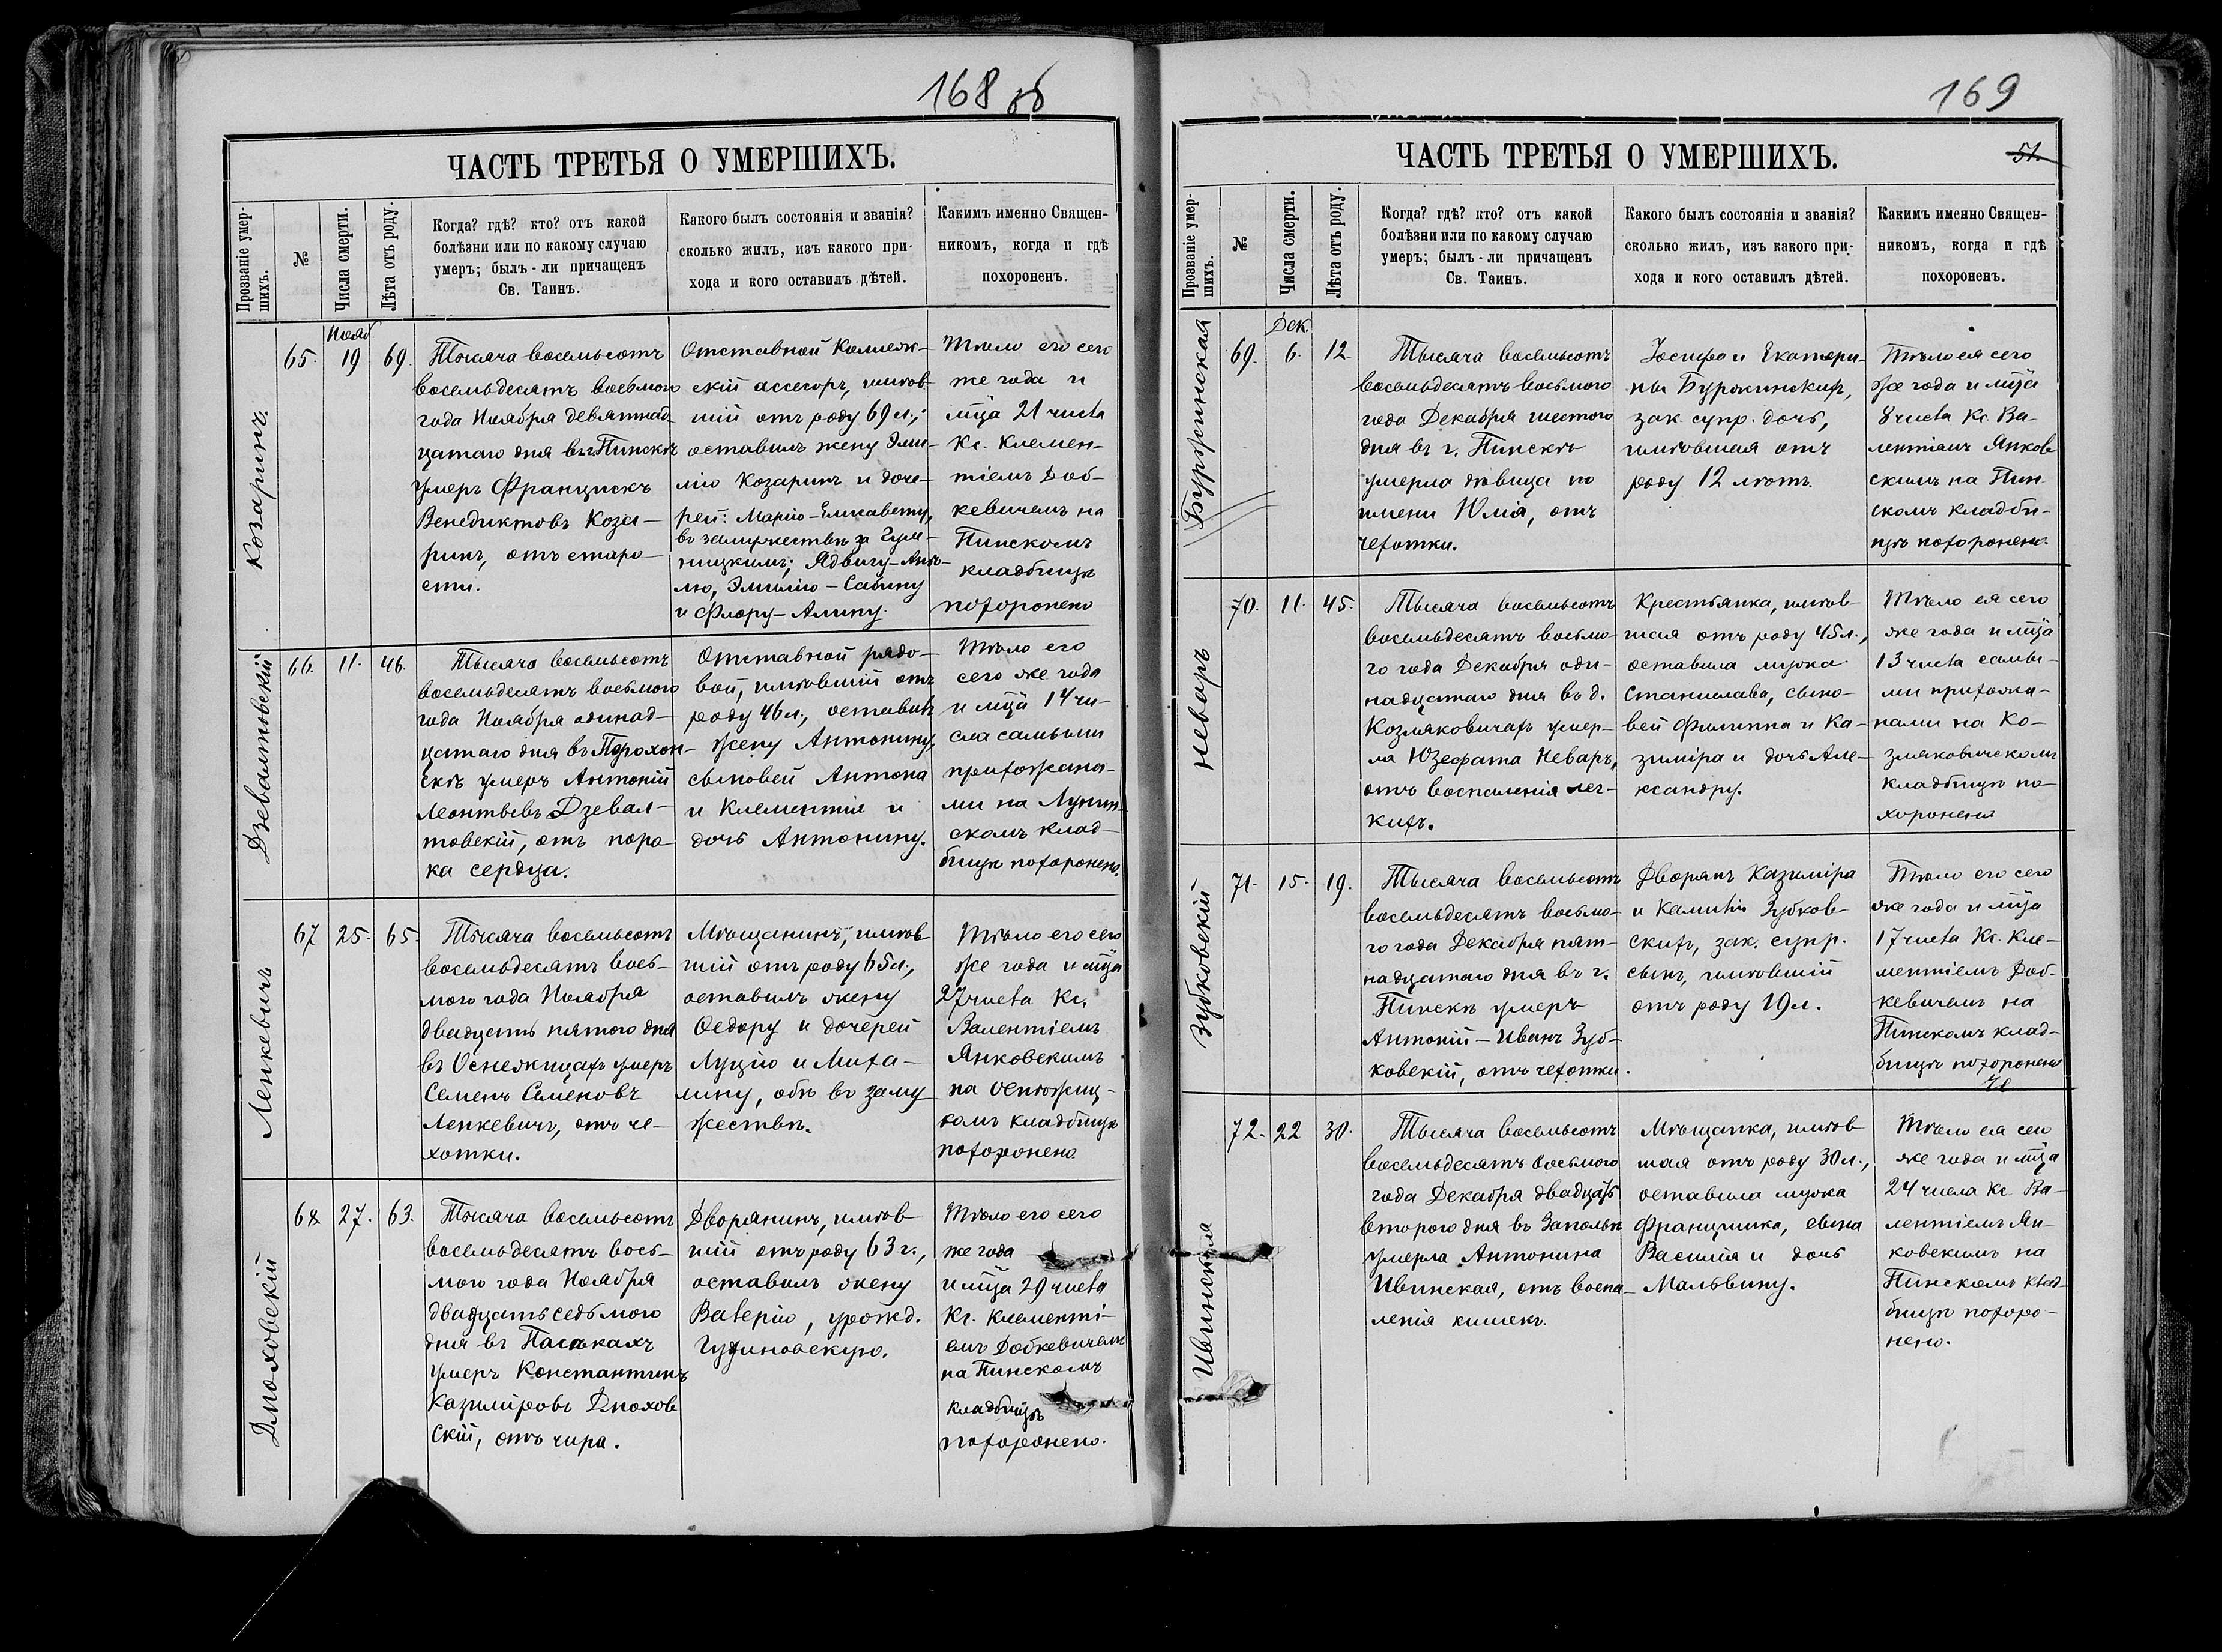 168 об
ЧАСТЬ ТРЕТЬЯ О УМЕРШИХЪ.
Прозваніе умер-
шихъ.
№
Числа смерти.
Лѣта отъ роду.
Когда? гдѣ? кто? отъ какой
болѣзни или по какому случаю
умеръ; былъ-ли причащенъ
Св. Таинъ.
Какого былъ состоянія и званія?
сколько жилъ, изъ какого при-
хода и кого оставилъ дѣтей.
Какимъ именно Священ-
никомъ, когда и гдѣ
похороненъ.
Козаринъ.
65.
Нояб
19
69.
Тысяча восемьсотъ
восемьдесятъ восьмого
года Ноября девятнад-
цатаго дня въ г. Пинскѣ
умеръ Францискъ
Венедиктовъ Коза-
ринъ, отъ старо-
сти.
Отставной Коллеж-
скій ассесоръ, имѣв-
шій отъ роду 69 л.;
оставилъ жену Эми-
лію Козаринъ и доче-
рей: Марію-Елисавету,
въ замужествѣ за Гум-
ницкимъ; Ядвигу-Анѣ-
лю, Эмилію-Сабину
и Флору-Алину.
Тѣло его сего
же года и
мца 21 числа
Кс. Клемен-
тіемъ Доб-
кевичемъ на
Пинскомъ
кладбищѣ
похоронено
Дзевалтовскій
66.
11.
46.
Тысяча восемьсотъ
восемьдесятъ восьмого
года Ноября одинад-
цатаго дня въ Порохон-
скѣ умеръ Антоній
Леонтьевъ Дзевал-
товскій, отъ поро-
ка сердца.
Отставной рядо-
вой, имѣвшій отъ
роду 46 л., оставилъ
жену Антонину,
сыновей Антона
и Клементія и
дочь Антонину.
Тѣло его
сего же года
и мца 14 чи-
сла самыми
прихожана-
ми на Лунин-
скомъ клад-
бищѣ похоронено.
Ленкевичъ
67
25.
65.
Тысяча восемьсотъ
восемьдесятъ вось-
мого года Ноября
двадцать пятого дня
въ Оснежицахъ умеръ
Семенъ Семеновъ
Ленкевичъ, отъ ча-
хотки.
Мѣщанинъ, имѣв
шій отъ роду 65 л.,
оставилъ жену
Ѳедору и дочерей
Луцію и Миха-
лину, обѣ въ заму
жествѣ.
Тѣло его сего
же года и мца
27 числа Кс.
Валентіемъ
Янковскимъ
на Оснѣжиц-
комъ кладбищѣ
похоронено
Дмоховскій
68
27.
63.
Тысяча восемьсотъ
восемьдесятъ вось-
мого года Ноября
двадцать седьмого
дня въ Паськахъ
умеръ Константинъ
Казиміровъ Дмохов
скій, отъ чира.
Дворянинъ, имѣв
шій отъ роду 63 г.,
оставилъ жену
Валерію, урожд.
Тѣло его сего
же года
и мца 29 числа
Кс. Клементі-
емъ Добкевичемъ
на Пинскомъ
кладбищѣ
похоронено.
169
ЧАСТЬ ТРЕТЬЯ О УМЕРШИХЪ.
51.
Прозваніе умер-
шихъ.
№
Числа смерти.
Лѣта отъ роду.
Когда? гдѣ? кто? отъ какой
болѣзни или по какому случаю
умеръ; былъ-ли причащенъ
Св. Таинъ.
Какого былъ состоянія и званія?
сколько жилъ, изъ какого при-
хода и кого оставилъ дѣтей.
Какимъ именно Священ-
никомъ, когда и гдѣ
похороненъ.
Буржинская
69.
Дек.
6.
12.
Тысяча восемьсотъ
восемьдесятъ восьмого
года Декабря шестого
дня въ г. Пинскѣ
умерла дѣвица по
имени Юлія, отъ
чехотки.
Іосифа и Екатери-
ны Буржинскихъ,
зак. супр. дочь,
имѣвшая отъ
роду 12 лѣтъ.
Тѣло ея сего
же года и мца
8 числа Кс. Ва-
лентіемъ Янков
скимъ на Пин
скомъ кладби-
щѣ похоронено.
Неваръ
70.
11.
45.
Тысяча восемьсотъ
восемьдесятъ восьмо-
го года Декабря оди-
надцатаго дня въ д.
Козляковичахъ умер-
ла Юзефата Неваръ,
отъ воспаленія лег-
кихъ.
Крестьянка, имѣв
шая отъ роду 45 л.,
оставила мужа
Станислава, сыно-
вей Филиппа и Ка-
зиміра и дочь Але-
ксандру.
Тѣло ея сего
же года и мца
13 числа самы-
ми прихожа-
нами на Ко-
зляковичскомъ
кладбищѣ по-
хоронено
Зубковскій
71.
15.
19.
Тысяча восемьсотъ
восемьдесятъ восьмо-
го года Декабря пят-
надцатаго дня въ г.
Пинскѣ умеръ
Антоній-Иванъ Зуб-
ковскій, отъ чехотки.
Дворянъ Казиміра
и Камиліи Зубков-
скихъ, зак. супр.
сынъ, имѣвшій
отъ роду 19 л.
Тѣло его сего
же года и мца
17 числа Кс. Кле-
ментіемъ Доб-
кевичемъ на
Пинскомъ клад-
бищѣ похоронено
Ивинская
72.
22
30.
Тысяча восемьсотъ
восемьдесятъ восьмого
года Декабря двадцать
второго дня въ Запольѣ
умерла Антонина
Ивинская, отъ воспа-
ленія кишекъ.
Мѣщанка, имѣв
шая отъ роду 30 л.,
оставила мужа
Францишка, сына
Василія и дочь
Мальвину.
Тѣло ея сего
же года и мца
24 числа Кс. Ва-
лентіемъ Ян-
ковскимъ на
Пинскомъ клад-
бищѣ похоро-
нено.